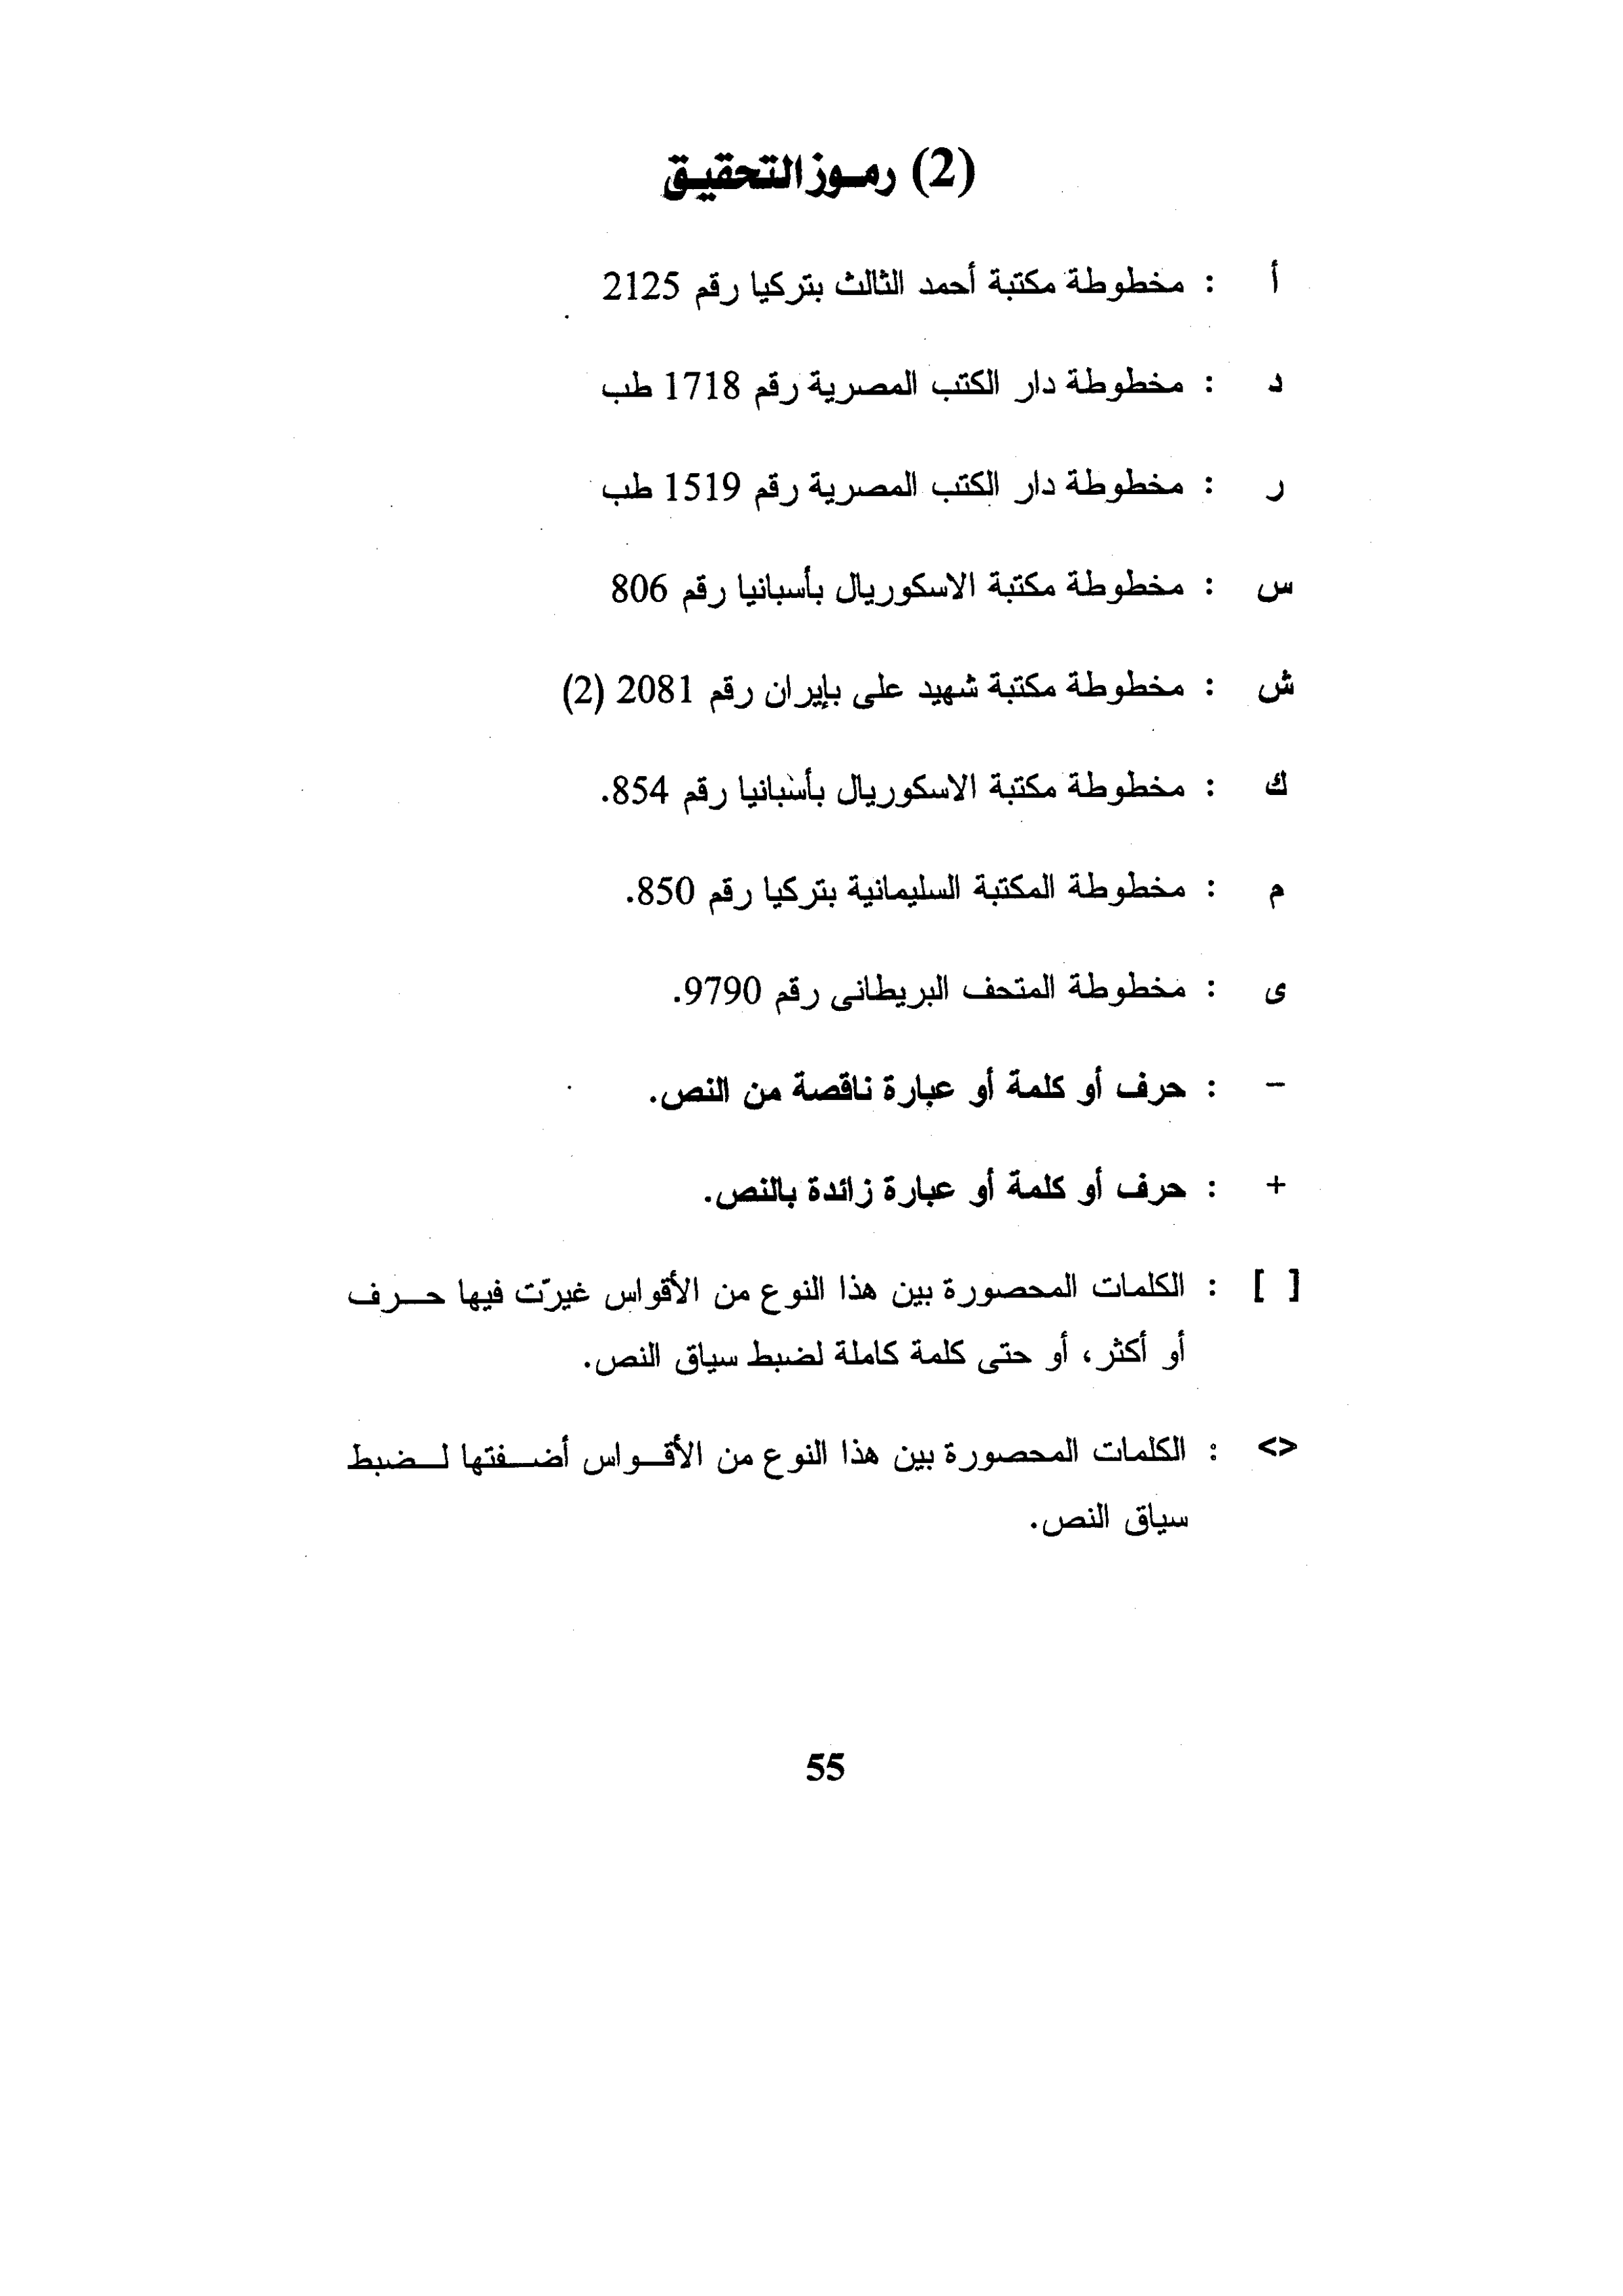 (2) رموز التحقيق
أ : مخطوطة مكتبة أحمد الثالث بتركيا رقم 2125
د : مخطوطة دار الكتب المصرية رقم 1718 طب
ر : مخطوطة دار الكتب المصرية رقم 1519 طب
س : مخطوطة مكتبة الاسكوريال بأسبانيا رقم 806
ش : مخطوطة مكتبة شهيد على بإيران رقم 2081 (2)
ك : مخطوطة مكتبة الاسكوريال بأسبانيا رقم 854.
م : مخطوطة المكتبة السليمانية بتركيا رقم 850.
ى : مخطوطة المتحف البريطانى رقم 9790.
– : حرف أو كلمة أو عبارة ناقصة من النص.
+ : حرف أو كلمة أو عبارة زائدة بالنص.
[ ] : الكلمات المحصورة بين هذا النوع من الأقواس غيرّت فيها حرف
أو أكثر، أو حتى كلمة كاملة لضبط سياق النص.
<> : الكلمات المحصورة بين هذا النوع من الأقواس أضفتها لضبط
سياق النص.
55